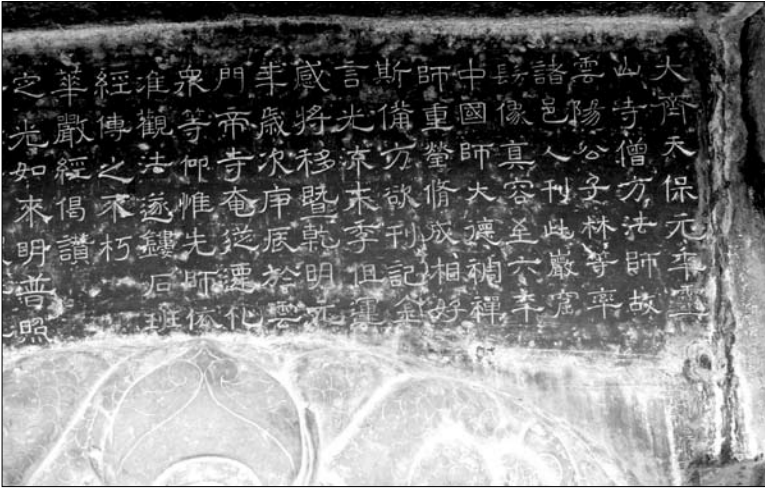 大齊天保元年靈
山寺僧方法師故
雲陽公子林等率
諸邑人刊此巖窟
髣像真容至六年
中國師大德稠禪
師重瑩脩成相好
斯備方欲刊記金
言光流末季但運
感將移暨乾明元
年歲次庚辰於雲
門帝寺奄從遷化
衆等仰惟先師依
准觀法遂鏤石班
經傳之不朽
華嚴經偈讚
之光如來明普照